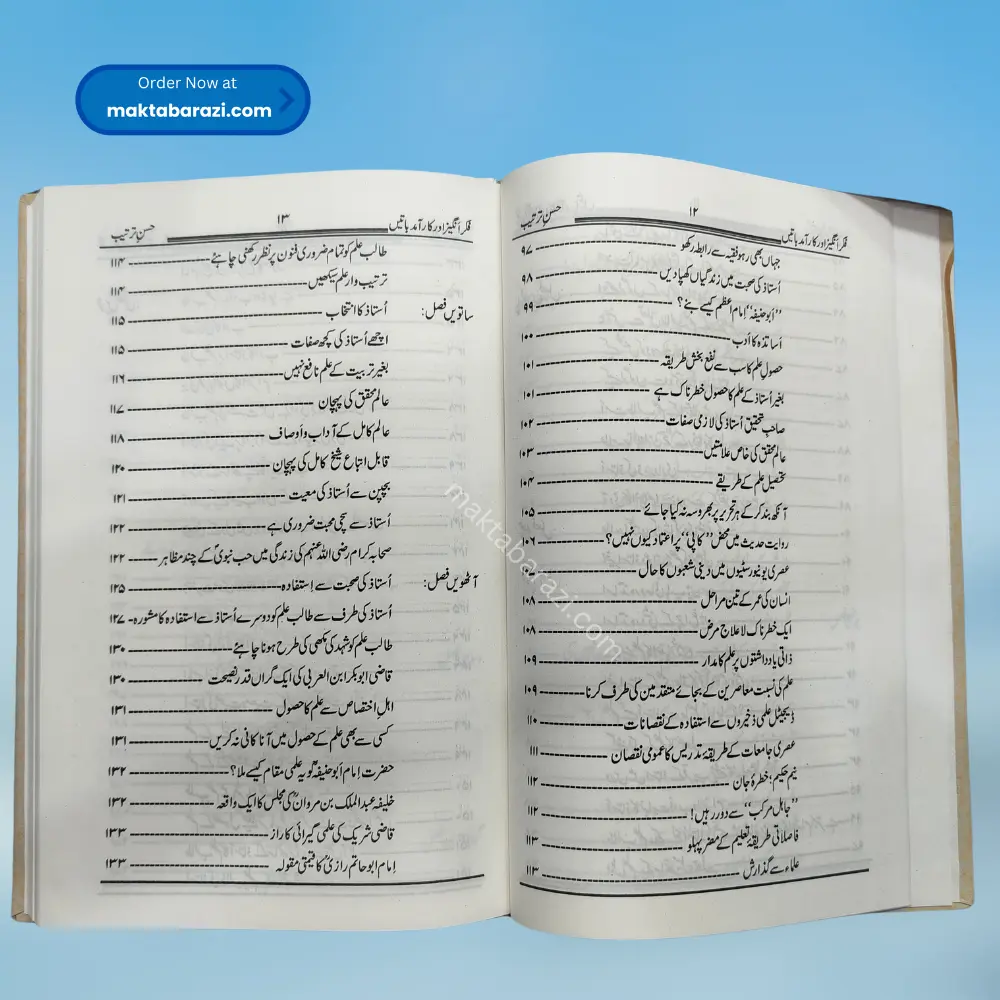 Order Now at
maktabarazi.com
فکر انگیز اور کار آمد باتیں ۱۲ حسن ترتیب
جہاں بھی رہو فقیہ سے رابطہ رکھو ۹۷
اُستاذ کی صحبت میں زندگیاں کھپا دیں ۹۸
’’ابوحنیفہ‘‘ اِمام اعظم کیسے بنے؟ ۹۹
اساتذہ کا اَدب ۱۰۰
حصولِ علم کا سب سے نفع بخش طریقہ ۱۰۱
بغیر اُستاذ کے علم کا حصول خطرناک ہے ۱۰۱
صاحبِ تحقیق اُستاذ کی لازمی صفات ۱۰۲
عالم محقق کی خاص علامتیں ۱۰۳
تحصیل علم کے طریقے ۱۰۴
آنکھ بند کر کے ہر تحریر پر بھروسہ نہ کیا جائے ۱۰۵
روایت حدیث میں محض ’’کاپی‘‘ پر اعتماد کیوں نہیں؟ ۱۰۶
عصری یونیورسٹیوں میں دینی شعبوں کا حال ۱۰۷
انسان کی عمر کے تین مراحل ۱۰۸
ایک خطرناک لاعلاج مرض ۱۰۸
ذاتی یادداشتوں پر علم کا مدار ۱۰۹
علم کی نسبت معاصرین کے بجائے متقدمین کی طرف کرنا ۱۰۹
ڈیجیٹل علمی ذخیروں سے استفادہ کے نقصانات ۱۱۰
عصری جامعات کے طریقۂ تدریس کا عمومی نقصان ۱۱۱
نیم حکیم؛ خطرۂ جان ۱۱۲
’’جاہل مرکب‘‘ سے دور رہیں! ۱۱۲
فاصلاتی طریقۂ تعلیم کے مضر پہلو ۱۱۳
علماء سے گذارش ۱۱۳
فکر انگیز اور کار آمد باتیں ۱۳ حسن ترتیب
طالب علم کو تمام ضروری فنون پر نظر رکھنی چاہئے ۱۱۴
ترتیب وار علم سیکھیں ۱۱۴
ساتویں فصل: اُستاذ کا انتخاب ۱۱۵
اچھے اُستاذ کی کچھ صفات ۱۱۵
بغیر تربیت کے علم نافع نہیں ۱۱۶
عالم محقق کی پہچان ۱۱۷
عالم کامل کے آداب واَوصاف ۱۱۸
قابل اتباع شیخ کامل کی پہچان ۱۲۰
بچپن سے اُستاذ کی معیت ۱۲۱
اُستاذ سے سچی محبت ضروری ہے ۱۲۲
صحابہ کرام رضی اللہ عنہم کی زندگی میں حب نبویؐ کے چند مظاہر ۱۲۲
آٹھویں فصل: اُستاذ کی صحبت سے اِستفادہ ۱۲۵
اُستاذ کی طرف سے طالب علم کو دوسرے اُستاذ سے استفادہ کا مشورہ ۱۲۷
طالب علم کو شہد کی مکھی کی طرح ہونا چاہئے ۱۳۰
قاضی ابوبکر ابن العربی کی ایک گراں قدر نصیحت ۱۳۰
اہلِ اختصاص سے علم کا حصول ۱۳۱
کسی سے بھی علم کے حصول میں آنا کانی نہ کریں ۱۳۱
حضرت اِمام ابوحنیفہؒ کو یہ علمی مقام کیسے ملا؟ ۱۳۲
خلیفہ عبدالملک بن مروانؒ کی مجلس کا ایک واقعہ ۱۳۲
قاضی شریک کی علمی گیرائی کا راز ۱۳۳
اِمام ابوحاتم رازیؒ کا قیمتی مقولہ ۱۳۳
maktabarazi.com